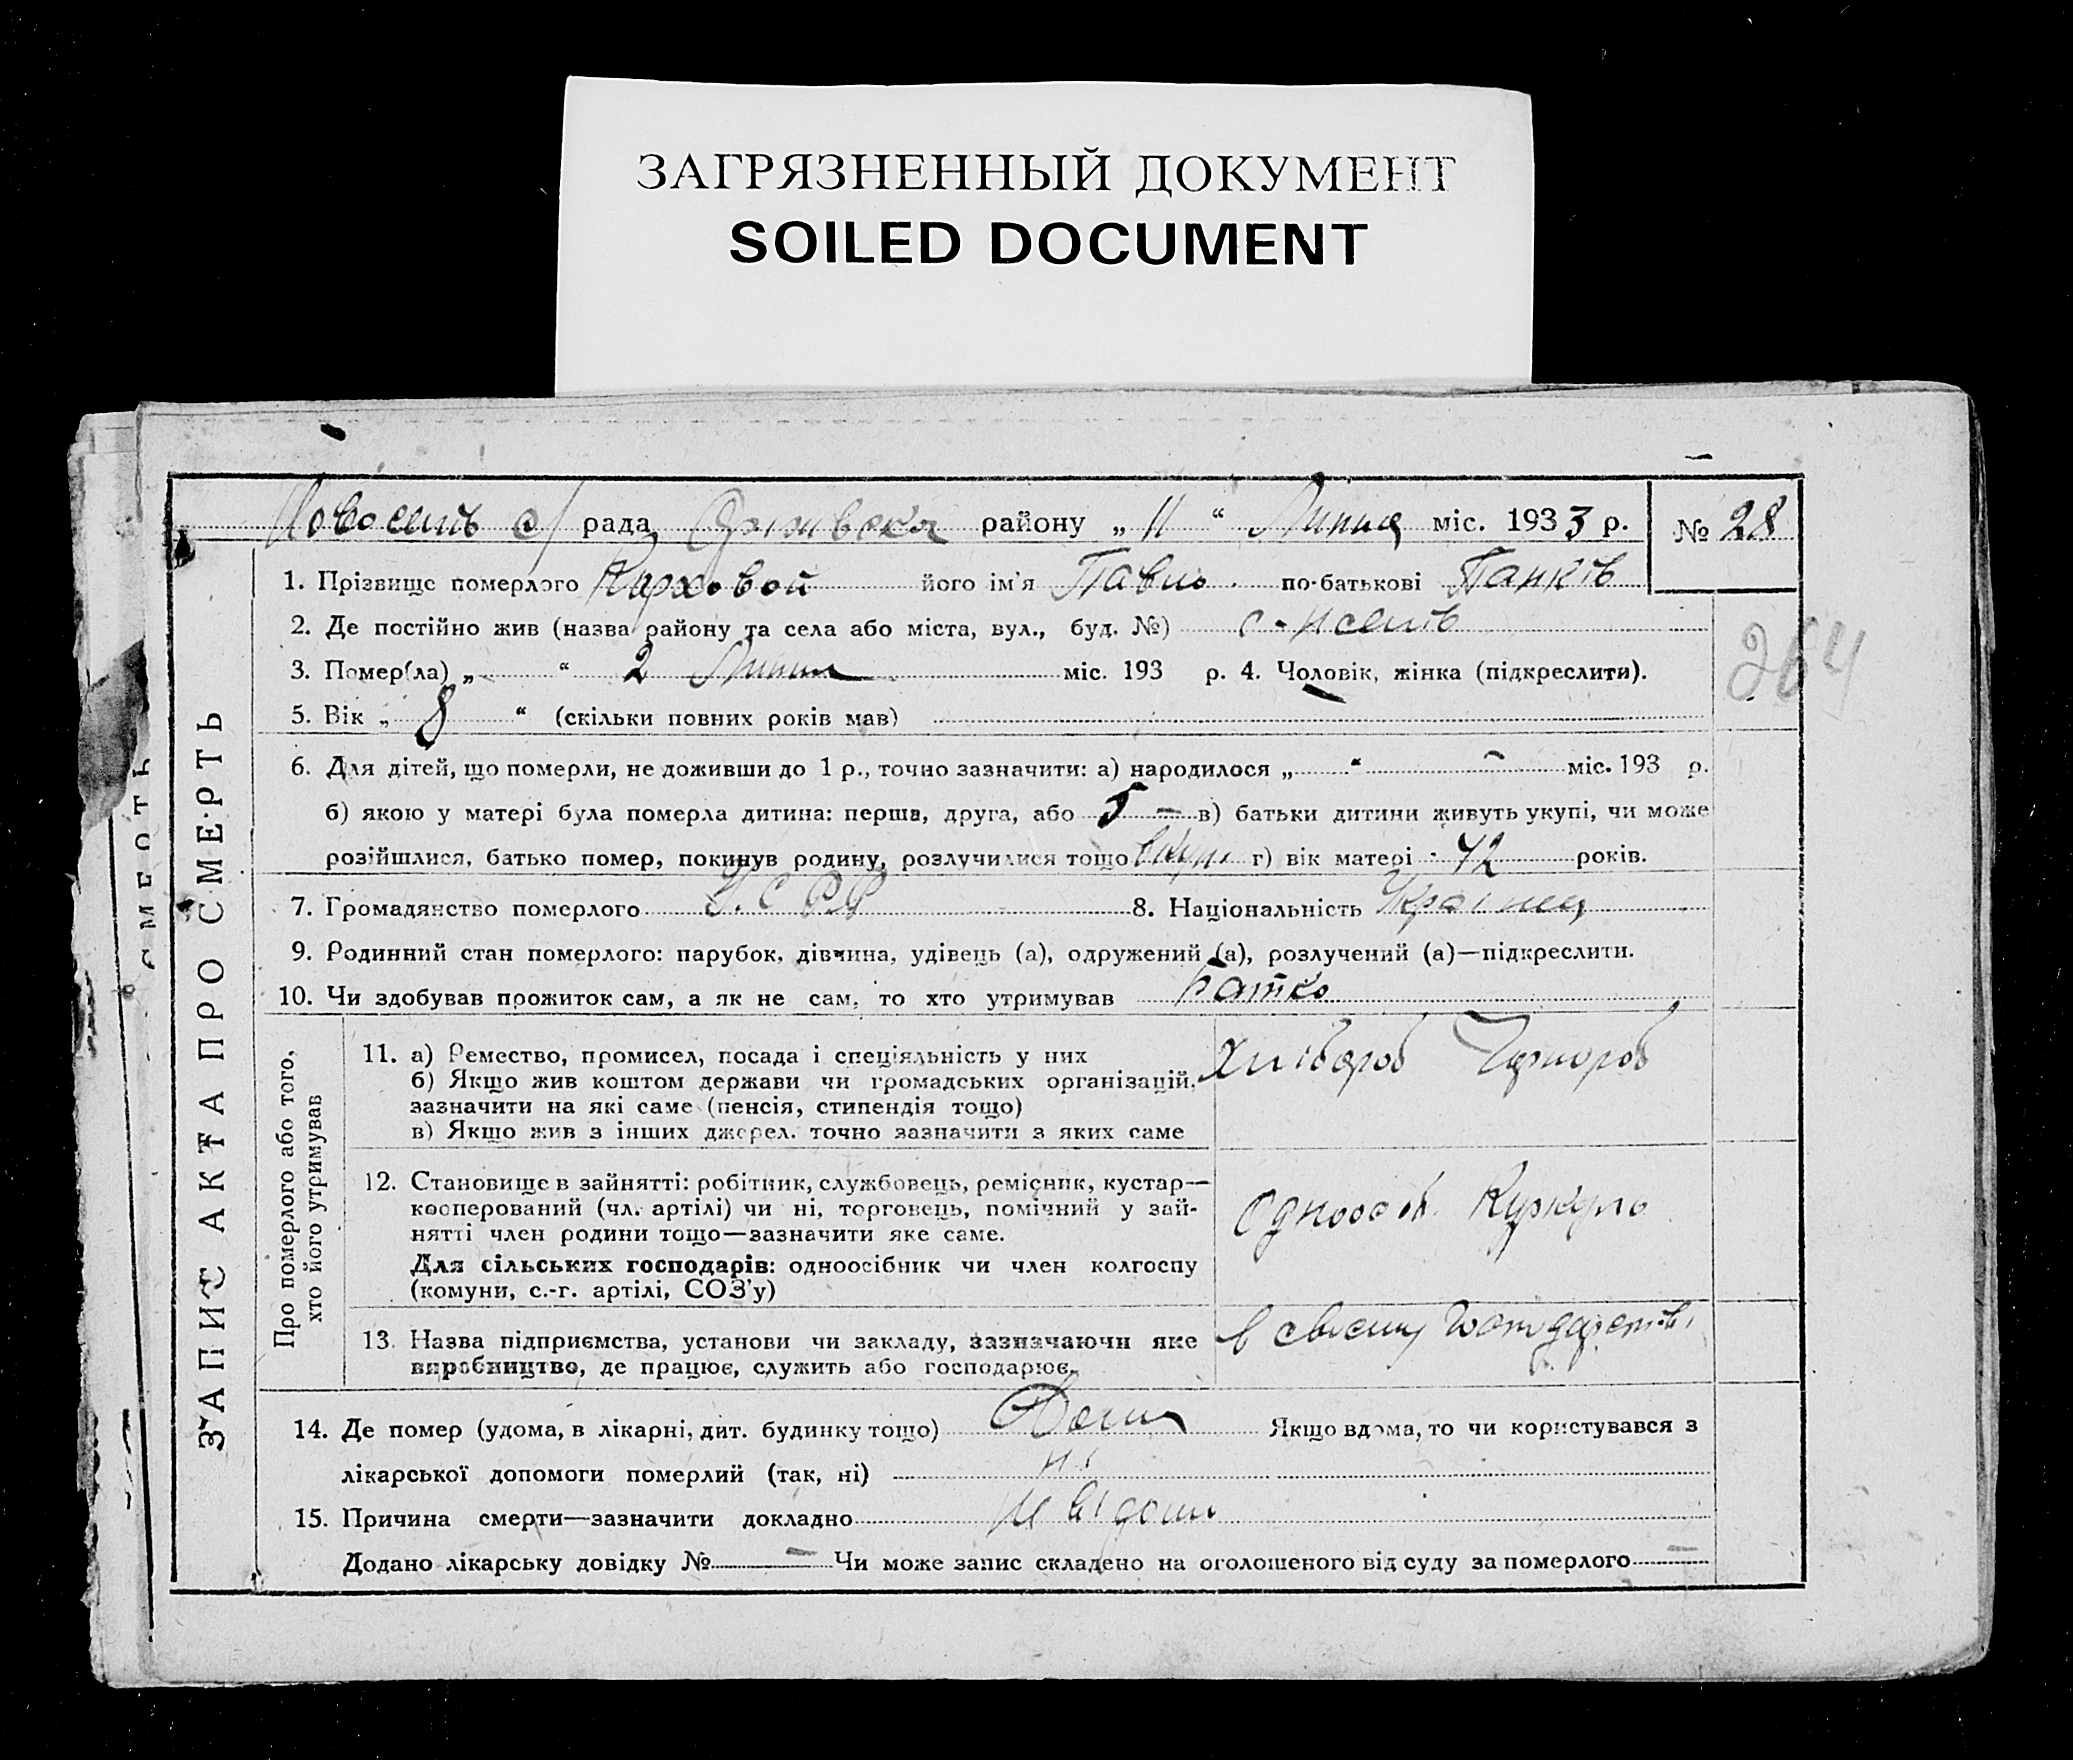 ЗАГРЯЗНЕННЫЙ ДОКУМЕНТ
SOILED DOCUMENT
с/ рада району „ 11 “ Липця міс. 1933 р. № 28
1. Прізвище померлого його ім'я Павло по-батькові
2. Де постійно жив (назва району та села або міста, вул., буд. №)
3. Помер(ла) „ “ 2 Липня міс. 193 р. 4. Чоловік, жінка (підкреслити).
264
5. Вік „ 8 “ (скільки повних років мав)
6. Для дітей, що померли, не доживши до 1 р., точно зазначити: а) народилося „ “ – міс. 193 р.
б) якою у матері була померла дитина: перша, друга, або 5 – в) батьки дитини живуть укупі, чи може
розійшлися, батько помер, покинув родину, розлучилися тощо вкупі г) вік матері 42 років.
7. Громадянство померлого 8. Національність Українец
9. Родинний стан померлого: парубок, дівчина, удівець (а), одружений (а), розлучений (а)—підкреслити.
10. Чи здобував прожиток сам, а як не сам, то хто утримував батько
ЗАПИС АКТА ПРО СМЕРТЬ
Про померлого або того,
хто його утримував
11. а) Ремество, промисел, посада і спеціяльність у них
б) Якщо жив коштом держави чи громадських організацій,
зазначити на які саме (пенсія, стипендія тощо)
в) Якщо жив з інших джерел, точно зазначити з яких саме
хлібороб
12. Становище в зайнятті: робітник, службовець, ремісник, кустар—
кооперований (чл. артілі) чи ні, торговець, помічний у зай-
нятті член родини тощо—зазначити яке саме.
Для сільських господарів: одноосібник чи член колгоспу
(комуни, с.-г. артілі, СОЗ'у)
одноосіб. Куркуль
13. Назва підприємства, установи чи закладу, зазначаючи яке
виробництво, де працює, служить або господарює.
в своєму господарстві
14. Де помер (удома, в лікарні, дит. будинку тощо) Дома Якщо вдома, то чи користувався з
лікарської допомоги померлий (так, ні) ні
15. Причина смерти—зазначити докладно
Додано лікарську довідку № – Чи може запис складено на оголошеного від суду за померлого –